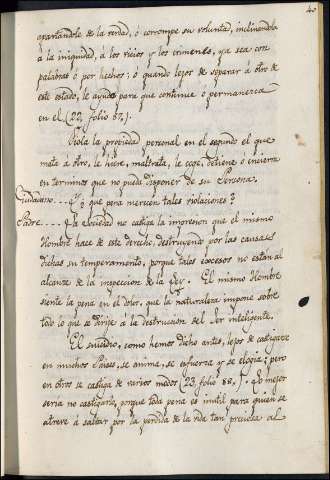 40
apartandole de la verdad, ó corrompe su voluntad, inclinandola
á la iniquidad, á los vicios y los crimenes, ya sea con
palabras ó por hechos; ó quando lejos de separar á otro de
este estado, le ayuda para que continue ó permanezca
en el (22 folio 87.).
Viola la propiedad personal en el segundo el que
mata á otro, le hiere, maltrata, le coge, detiene ó encierra
en terminos que no pueda disponer de su Persona.
Ciudadano.... Y qué pena merecen tales violaciones?
Padre.... La sociedad no castiga la impresion que el mismo
Hombre hace de este derecho, destruyendo por las causas
dichas su temperamento, porque tales excesos no estan al
alcance de la inspeccion de la Ley. El mismo Hombre
siente la pena en el dolor, que la naturaleza impone sobre
todo lo que se dirije á la destruccion del Ser inteligente.
El suicidio, como hemos dicho antes, lejos de castigarse
en muchos Paises, se anima, se esfuerza y se elogia; pero
en otros se castiga de varios modos (23 folio 88.). Lo mejor
seria no castigarlo, porque toda pena es inutil para quien se
atreve á saltar por la perdida de la vida tan preciosa al